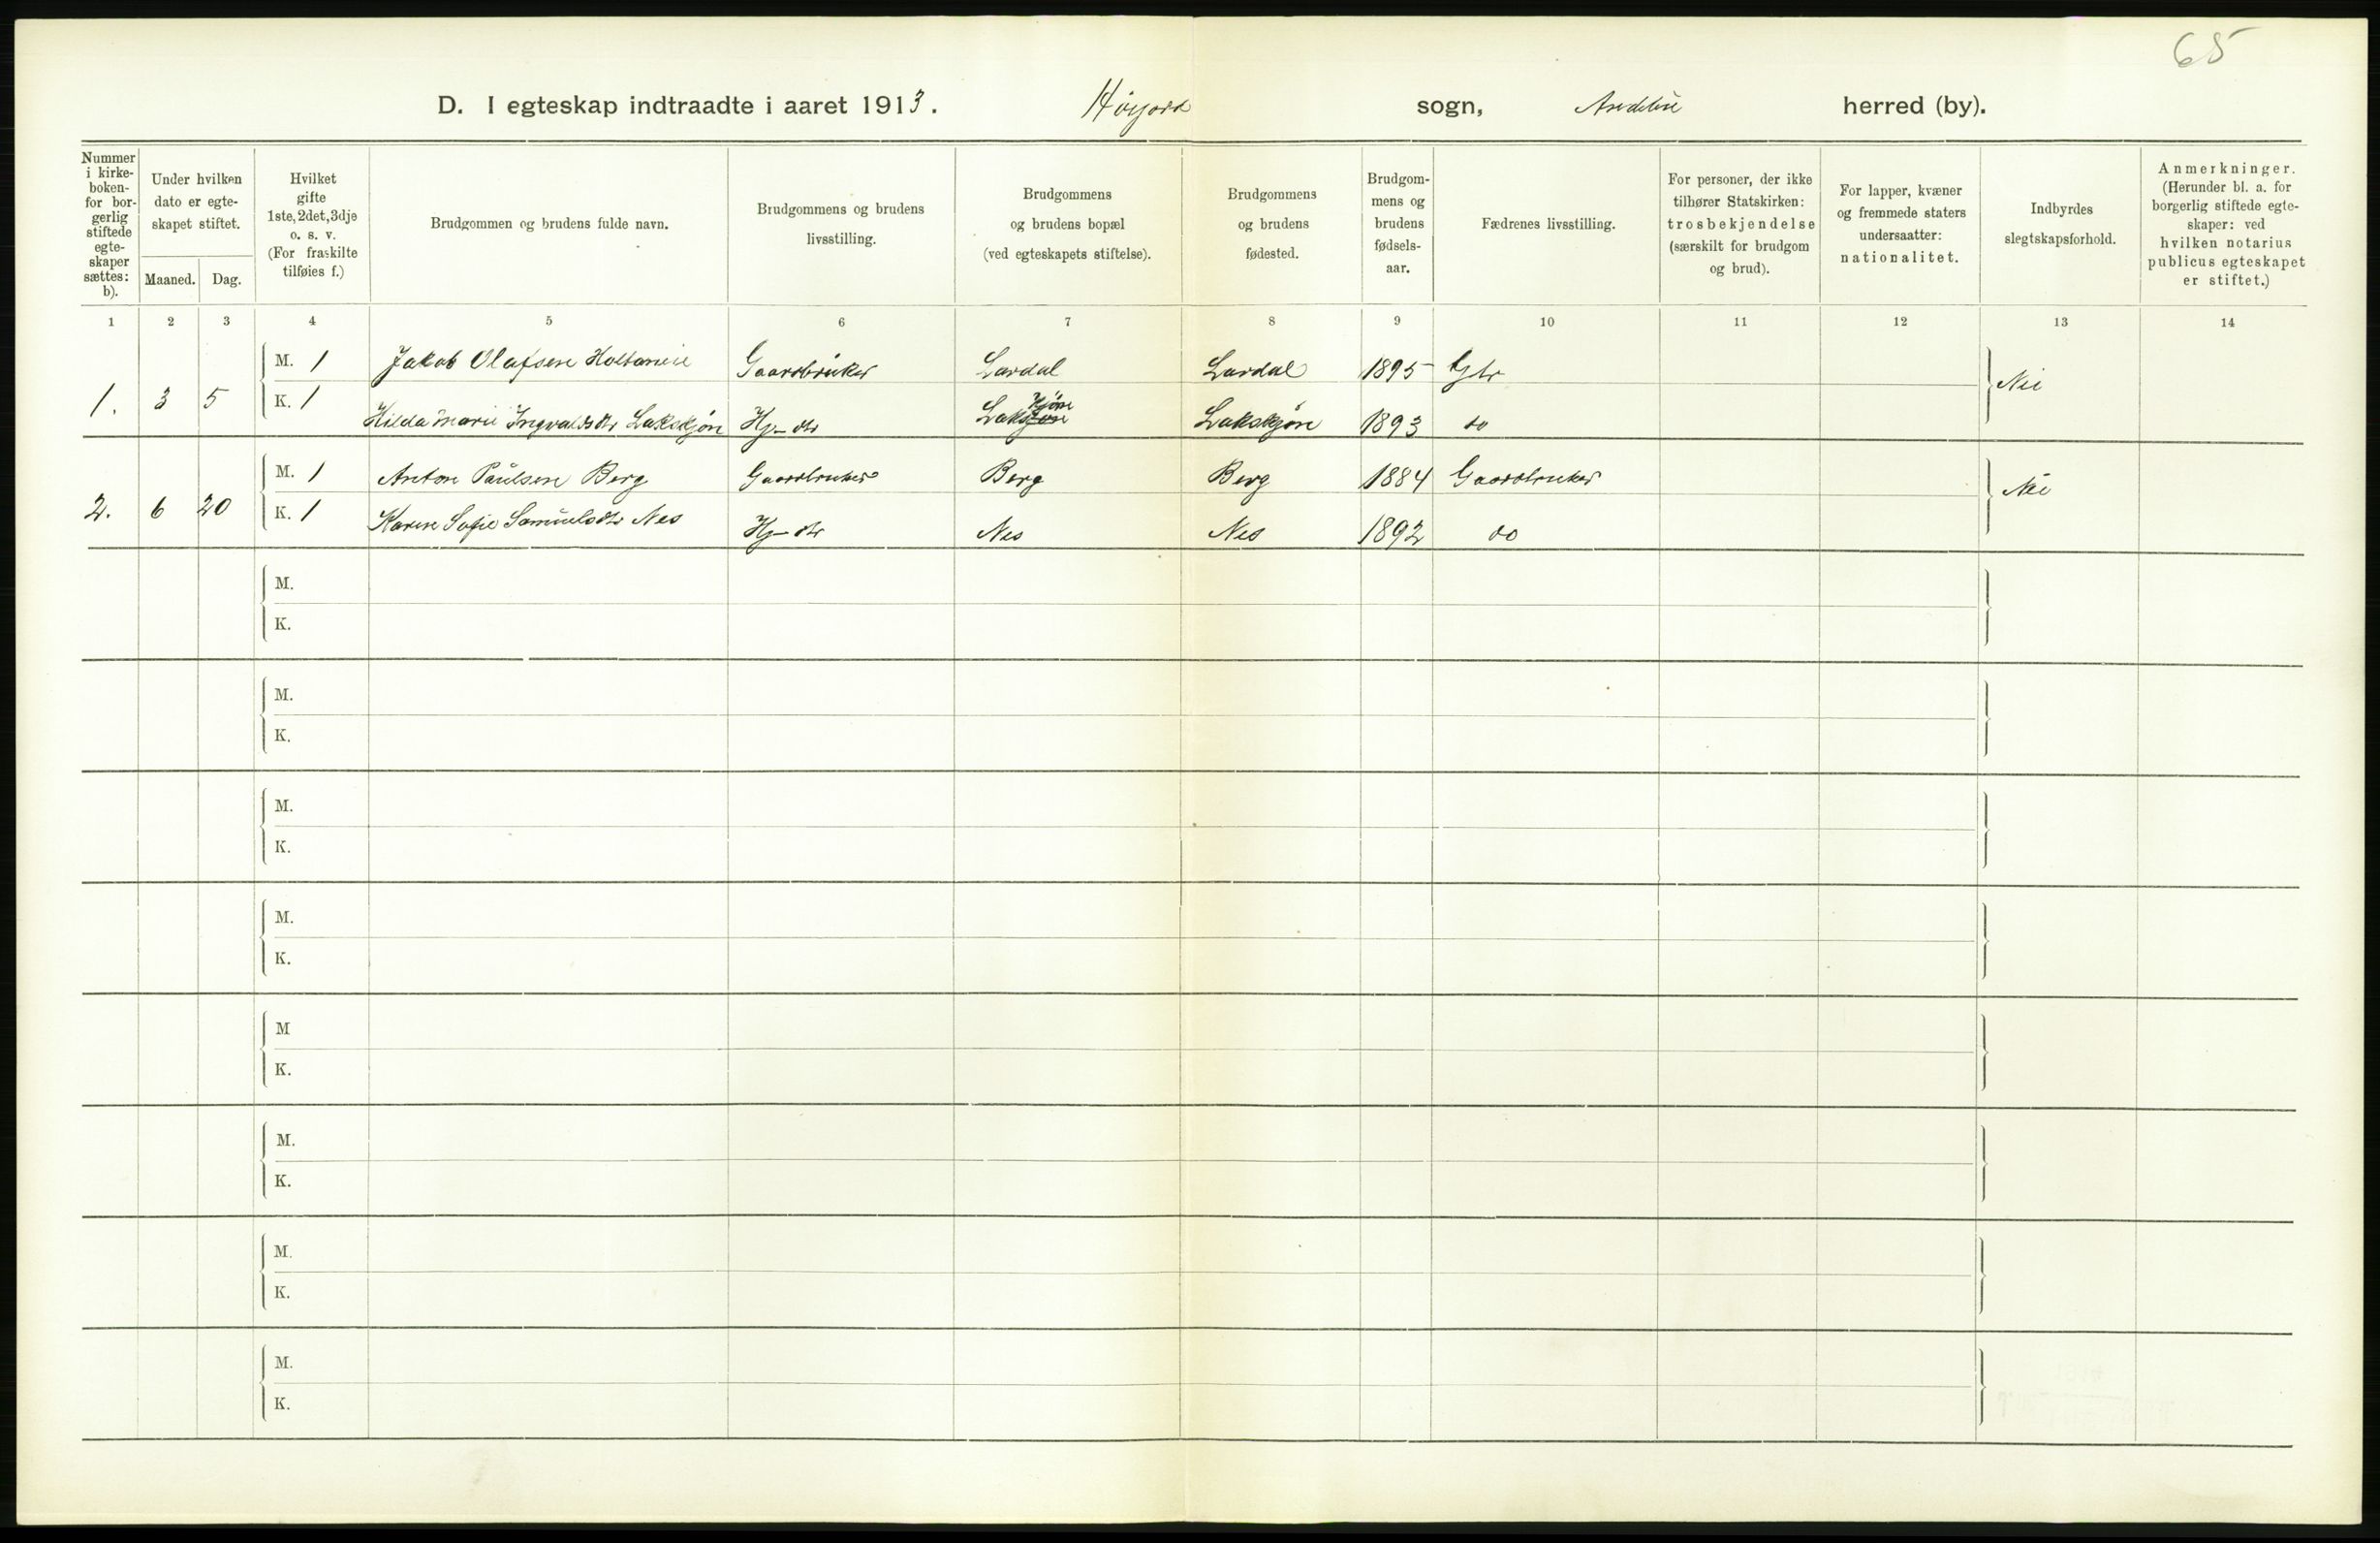 65
D. I egteskap indtraadte i aaret 1913. Høyjord sogn, Andebu herred (by).
Nummer i kirke-boken- for bor-gerlig stiftede egte-skaper sættes: b).
Under hvilken dato er egte-skapet stiftet.
Maaned. Dag.
Hvilket gifte 1ste, 2det, 3dje o. s. v. (For fraskilte tilføies f.)
Brudgommen og brudens fulde navn.
Brudgommens og brudens livsstilling.
Brudgommens og brudens bopæl (ved egteskapets stiftelse).
Brudgommens og brudens fødested.
Brudgom-mens og brudens fødsels-aar.
Fædrenes livsstilling.
For personer, der ikke tilhører Statskirken: trosbekjendelse (særskilt for brudgom og brud).
For lapper, kvæner og fremmede staters undersaatter: nationalitet.
Indbyrdes slegtskapsforhold.
Anmerkninger. (Herunder bl. a. for borgerlig stiftede egte-skaper: ved hvilken notarius publicus egteskapet er stiftet.)
1 2 3 4 5 6 7 8 9 10 11 12 13 14
1. 3 5 M. 1 Jakob Olafsen Gaardbruker Lardal Lardal 1895 Gbr Nei
K. 1 Hilda Marie Ingvaldsdtr Lakskjøn Hj-dtr Lakskjøn Lakskjøn 1893 do
2. 6 20 M. 1 Anton Paulsen Berg Gaardbruker Berg Berg 1884 Gaardbruker Nei
K. 1 Karen Sofie Samuelsdtr Nes Hj-dtr Nes Nes 1892 do
M.
K.
M.
K.
M.
K.
M.
K.
M
K.
M.
K.
M.
K.
M.
K.